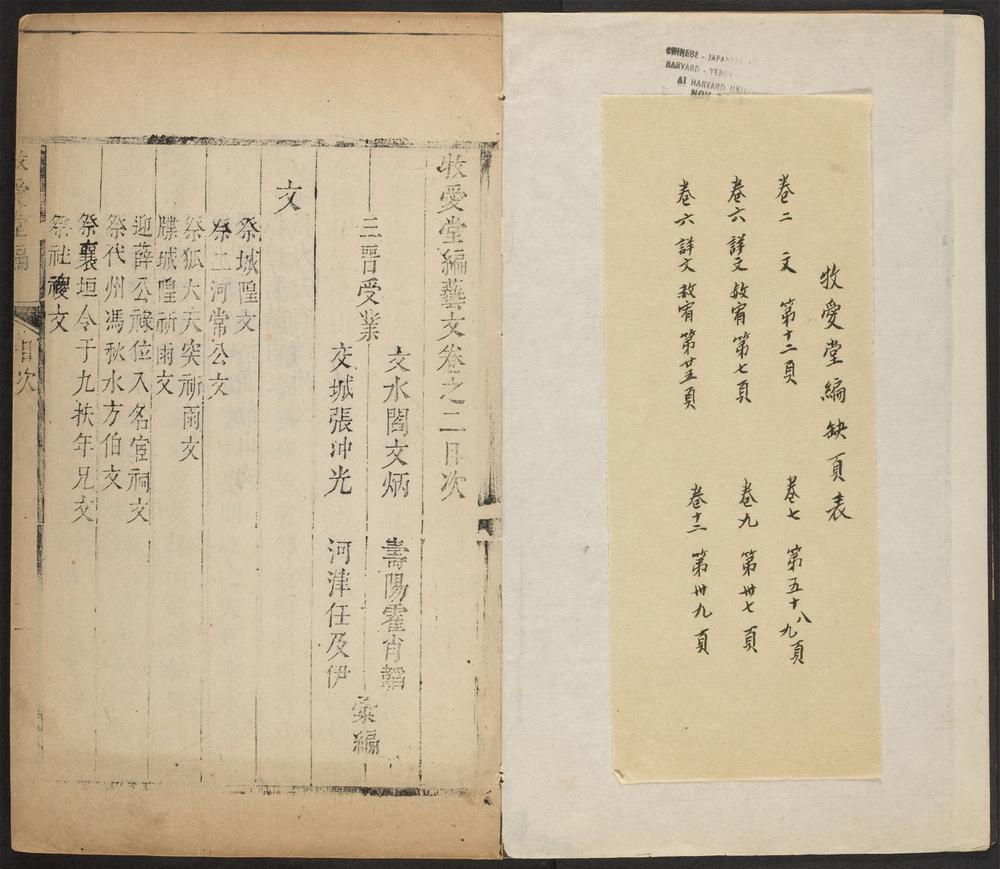 CHINESE - JAPAN
HARVARD - YEN
AT HARVARD UNI
NOV
牧愛堂編缺頁表
卷二 文 第十二頁
卷六 詳文赦宥第七頁
卷六 詳文赦宥第廿五頁
卷七 第五十八九頁
卷九 第卅七頁
卷十二 第卅九頁
牧愛堂編藝文卷之二目次
文水閻文炳 壽陽霍肯韜
三晉受業 彙編
交城張冲光 河津任及伊
文
祭城隍文
祭二河常公文
祭狐大夫突祈雨文
牒城隍祈雨文
迎薛公祿位入名宦祠文
祭代州馮秋水方伯文
祭襄垣令于九扶年兄文
祭社稷文
牧愛堂編
目次